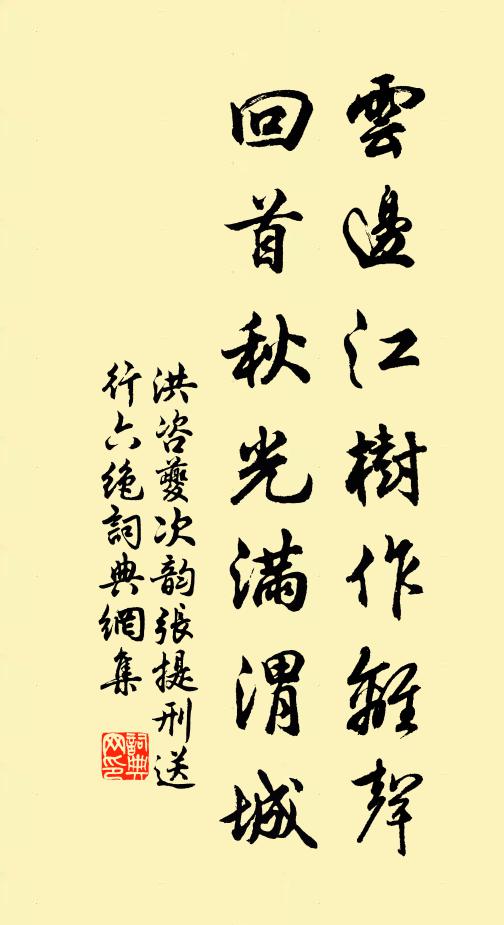 雲邊江樹作離聲
回首秋光滿渭城
洪咨夔次韵張提刑送
行六絶詞典網集
詞典
网印